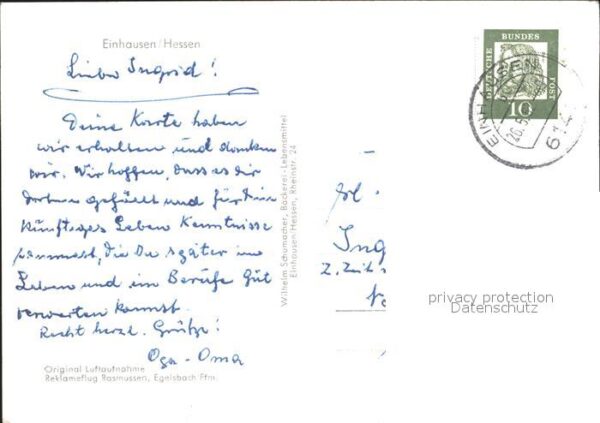 Einhausen/Hessen
Liebe Ingrid!
Deine Karte haben
wir erhalten und danken
Dir. Wir hoffen, dass es dir
dort gefällt und für Dein
künftiges Leben Kenntnisse
sammelst, die Du später im
Leben und im Berufe gut
verwerten kannst.
Recht herzl. Grüße!
Opa - Oma
Original Luftaufnahme
Reklameflug Rasmussen, Egelsbach Ffm.
Wilhelm Schumacher, Bäckerei - Lebensmittel
Einhausen-Hessen, Rheinstr. 24
DEUTSCHE BUNDES POST
10
EINHAUSEN
26.5
614
Frl.
Ing
z. Zeit
privacy protection
Datenschutz